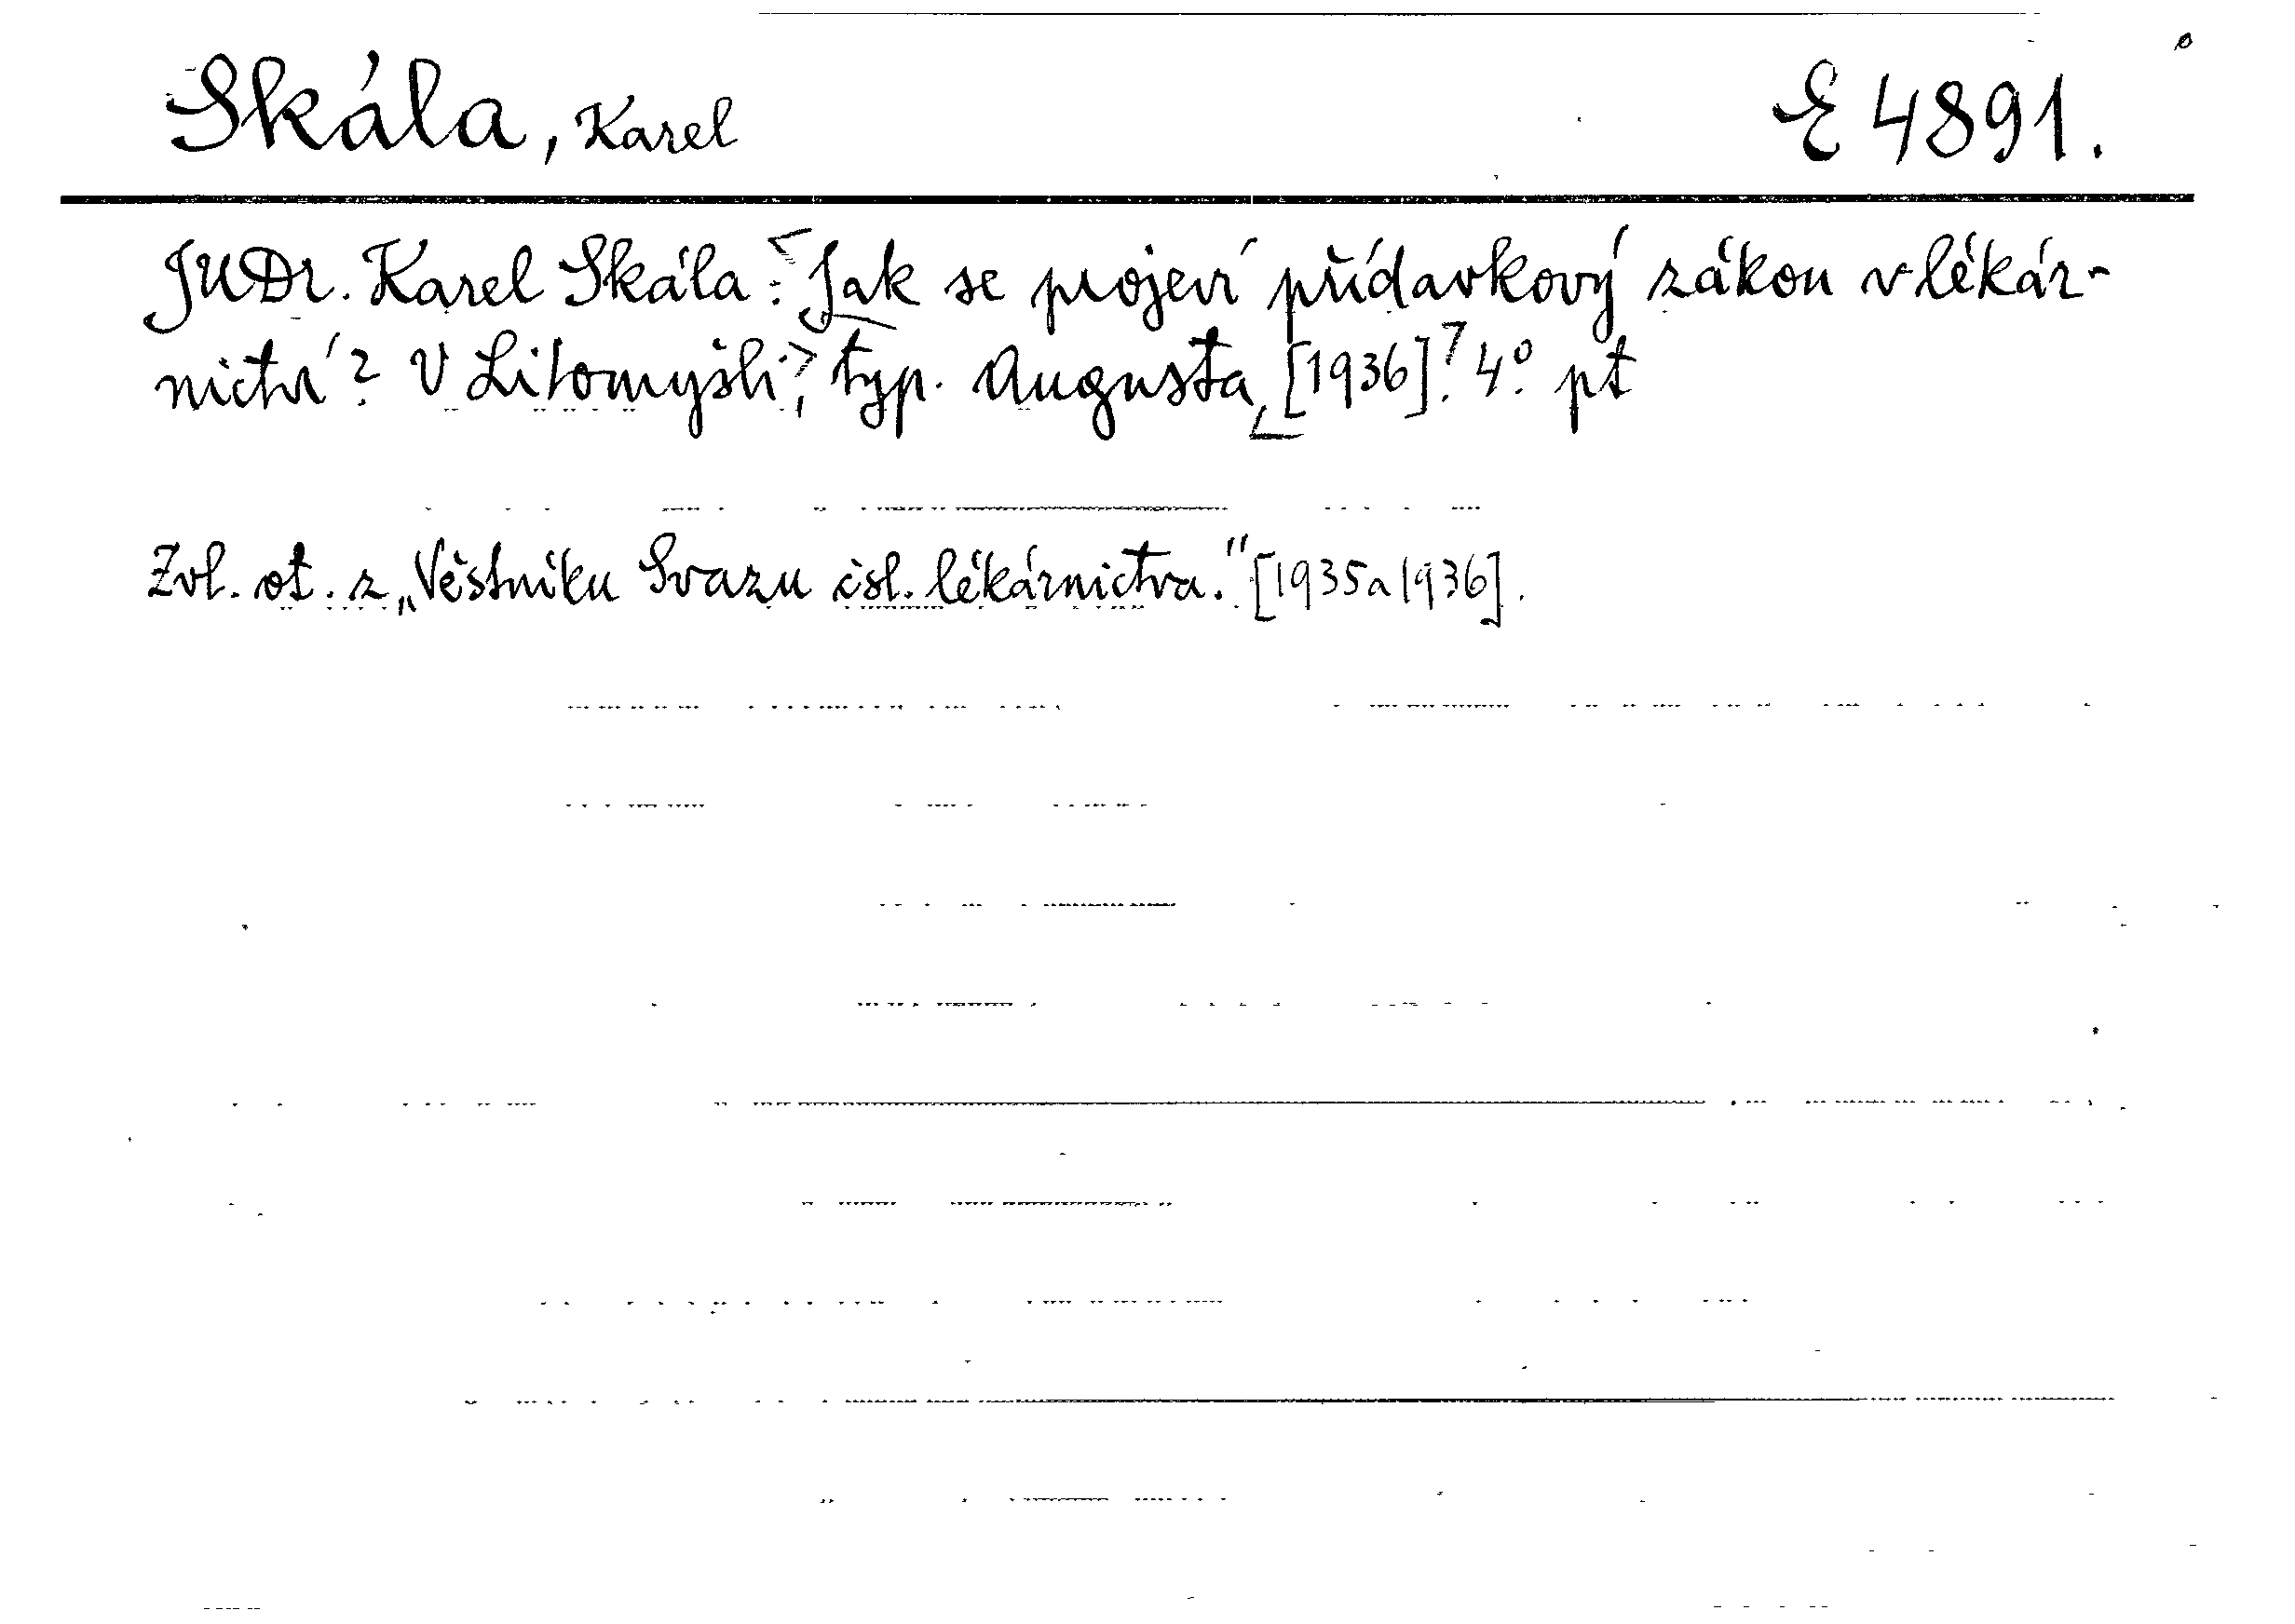 Skála, Karel E 4891.
JUDr. Karel Skála: Jak se projeví přídavkový zákon v lékár-
nictví? V Litomyšli, typ. Augusta, [1936]. 4°. pt
Zvl. ot. z „Věstníku Svazu čsl. lékárnictva." [1935 a 1936].